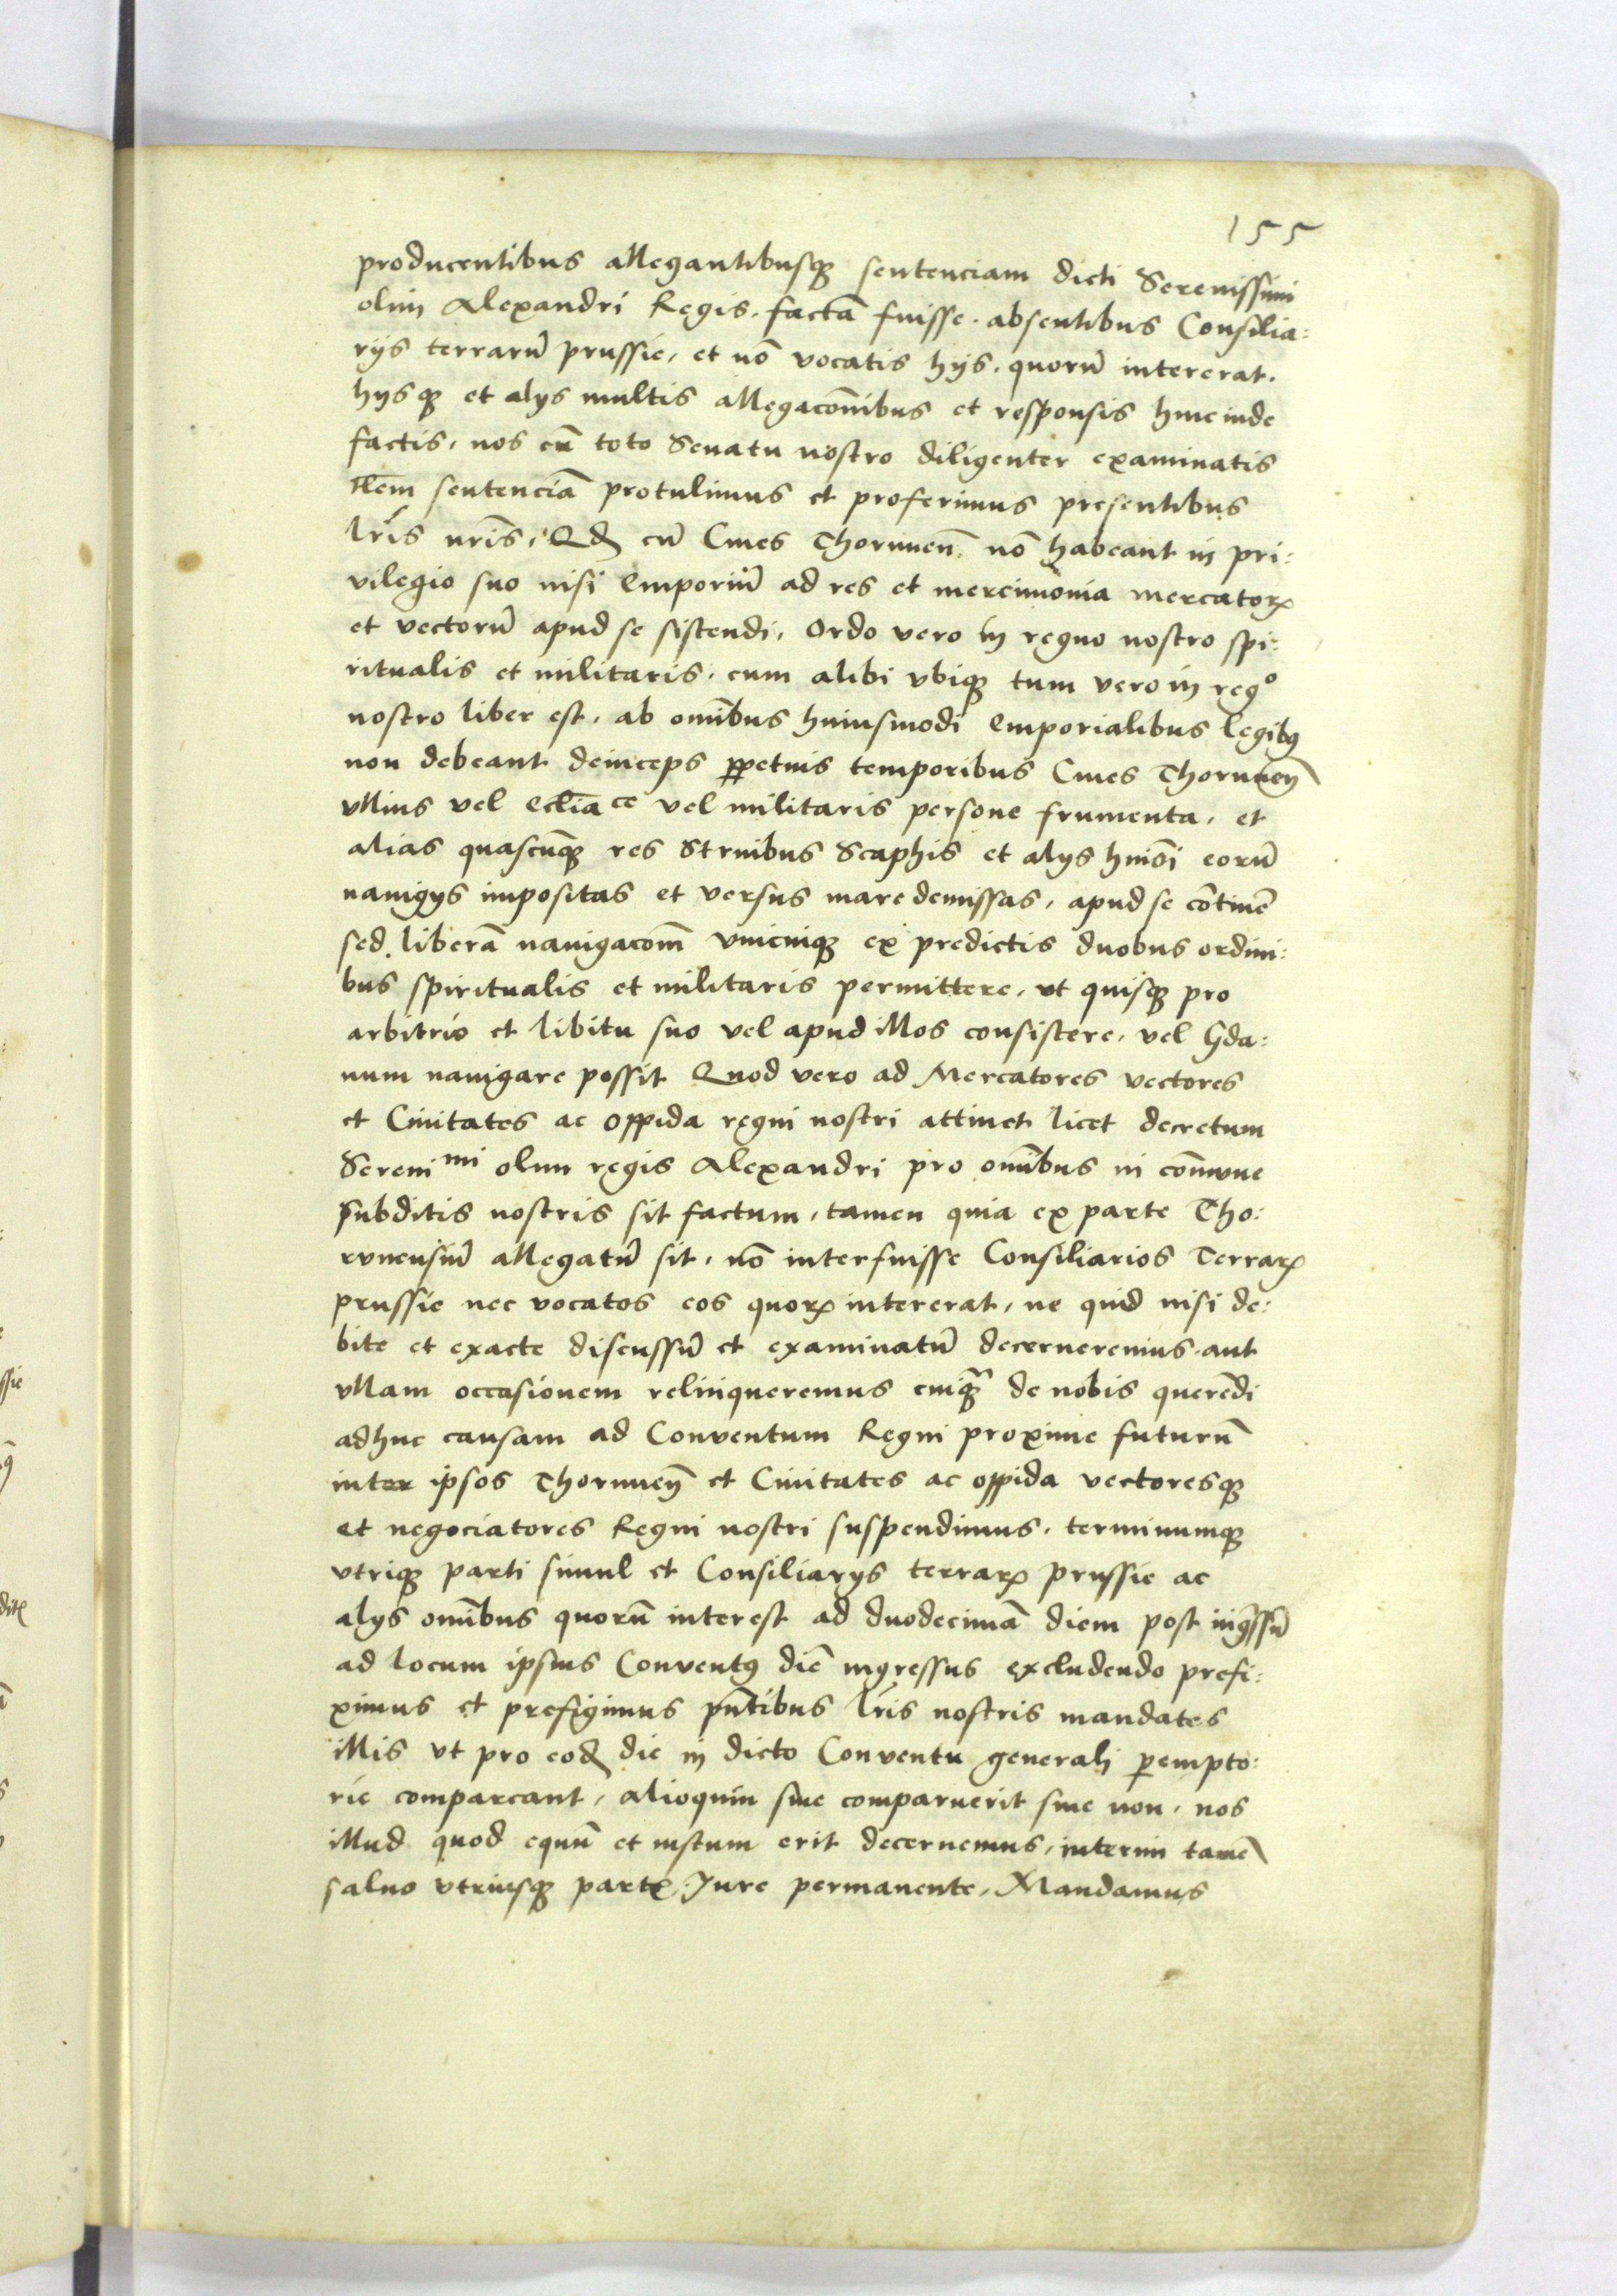 155
producentibus allegantibusqꝫ sentenciam dicti Serenissimi
olim Alexandri Regis. factā fuisse. absentibus Consilia:
rijs terrarū prussie, et nō vocatis hijs, quorū intererat.
hijsqꝫ et alijs multis allegacoībus et responsis hincinde
factis, nos cū toto Senatu nostro diligenter examinatis
sentenciā protulimus et proferimus presentibus
lr̄is nr̄is, Qđ cū Ciues Thorunen̄ nō habeant in pri:
vilegio suo nisi emporiū ad res et mercimonia mercatoꝝ
et vectorū apud se sistendi, Ordo vero in regno nostro spi:
ritualis et militaris, cum alibi vbiqꝫ tum vero in regº
nostro liber est, ab om̄ibus huiusmodi emporialibus legibꝰ
non debeant deinceps ꝑpetuis temporibus Ciues Thorunen̄
vllius vel eccl̄iaᶜᵉ vel militaris persone frumenta, et
alias quascūqꝫ res Struibus Scaphis et alijs hmōi eorū
nauigijs impositas et versus mare demissas, apud se cōtinē
sed liberā nauigacōm vnicuiqꝫ ex predictis duobus ordini:
bus spiritualis et militaris permittere, vt quisqꝫ pro
arbitrio et libitu suo vel apud illos consistere, vel Gda:
num nauigare possit Quod vero ad Mercatores vectores
et Ciuitates ac oppida regni nostri attinet licet decretum
Sereniᵐⁱ olim regis Alexandri pro om̄ibus in com̄une
subditis nostris sit factum, tamen quia ex parte Tho:
runensiū allegatū sit, nō interfuisse Consiliarios Terraꝝ
prussie nec vocatos eos quoꝝ intererat, ne quid nisi de:
bite et exacte discussū et examinatū decerneremus, aut
vllam occasionem relinqueremus cuiqꝫ̄ de nobis querēdi
adhuc causam ad Conventum Regni proxime futurū
inter ipsos Thorunen̄ et Ciuitates ac oppida vectoresqꝫ
et negociatores Regni nostri suspendimus, terminumqꝫ
vtriqꝫ parti simul et Consiliarijs terraꝝ prussie ac
alijs om̄ibus quorū interest ad duodecimā diem post ingressū
ad locum ipsius Conventꝰ diē ingressus excludendo prefi:
ximus et prefigimus pn̄tibus lr̄is nostris mandates
illis vt pro eođ die in dicto Conventu generali ꝑempto:
rie compareant, alioquin siue comparuerit siue non, nos
illud quod equū et iustum erit decernemus, interim tamē
saluo vtriusqꝫ partꝭ Jure permanente, Mandamus